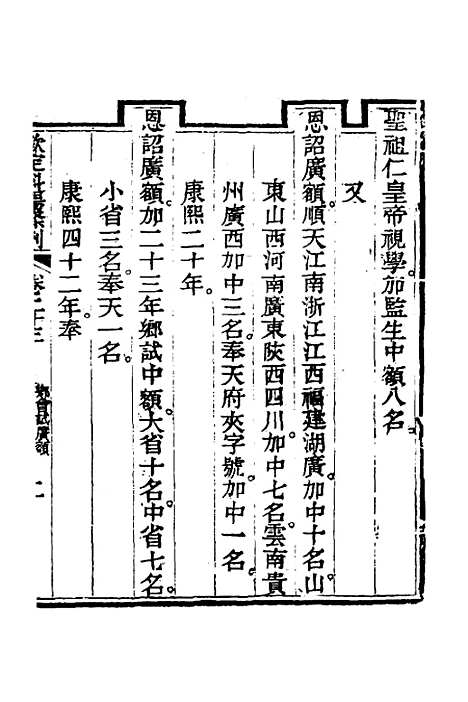 聖祖仁皇帝視學加監生中額八名。
又
恩詔廣額。順天江南浙江江西福建湖廣。加中十名。山
東山西河南廣東陝西四川。加中七名。雲南貴
州廣西加中三名。奉天府夾字號。加中一名。
康熙二十年。
恩詔廣額。加二十三年鄉試中額。大省十名。中省七名。
小省三名。奉天一名。
康熙四十二年。奉
欽定科場條例
鄉會試廣額